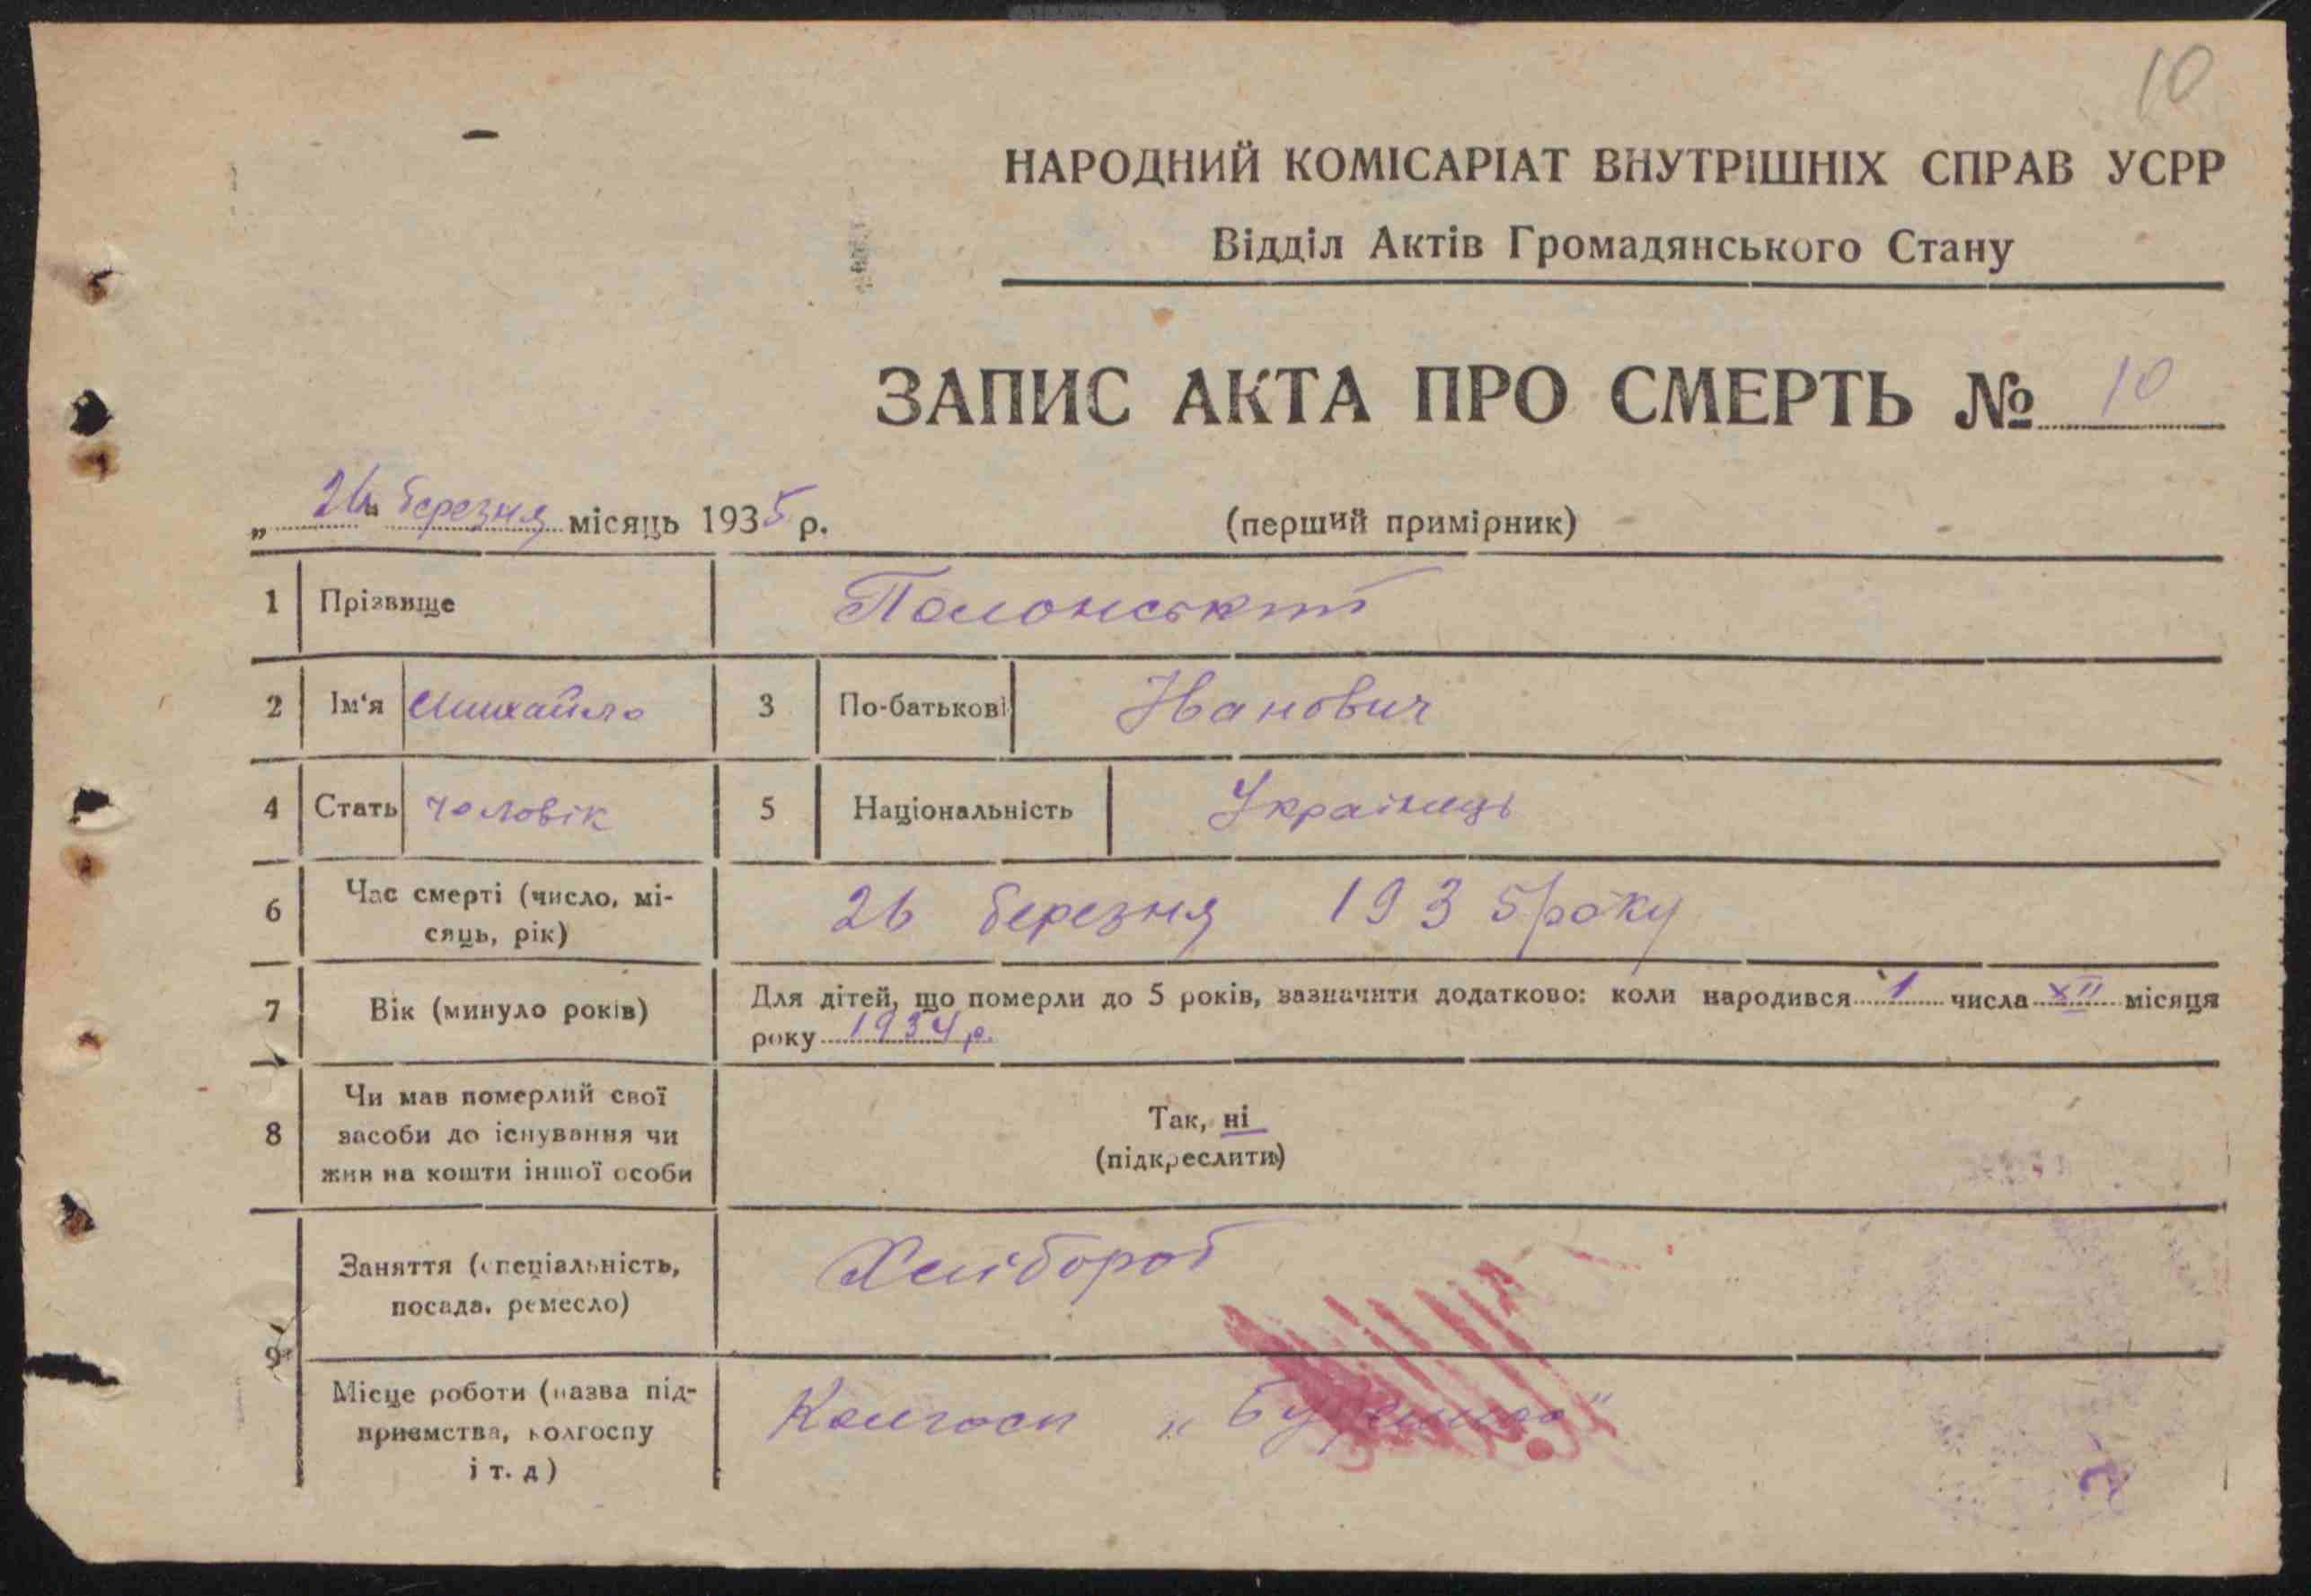 10
НАРОДНИЙ КОМІСАРІАТ ВНУТРІШНІХ СПРАВ УСРР
Відділ Актів Громадянського Стану
ЗАПИС АКТА ПРО СМЕРТЬ № 10
„26“ березня місяць 1935 р.
(перший примірник)
1 Прізвище Полонський
2 Ім‘я Михайло 3 По-батькові Іванович
4 Стать чоловік 5 Національність Українець
6 Час смерті (число, мі-
сяць, рік) 26 березня 1935 року
7 Вік (минуло років) Для дітей, що померли до 5 років, зазначити додатково: коли народився 1 числа XII місяця
року 1934 р.
8 Чи мав померлий свої
засоби до існування чи
жив на кошти іншої особи
Так, ні
(підкреслити)
9 Заняття (спеціальність,
посада, ремесло) Хлібороб
Місце роботи (назва під-
приємства, колгоспу
і т. д) Колгосп